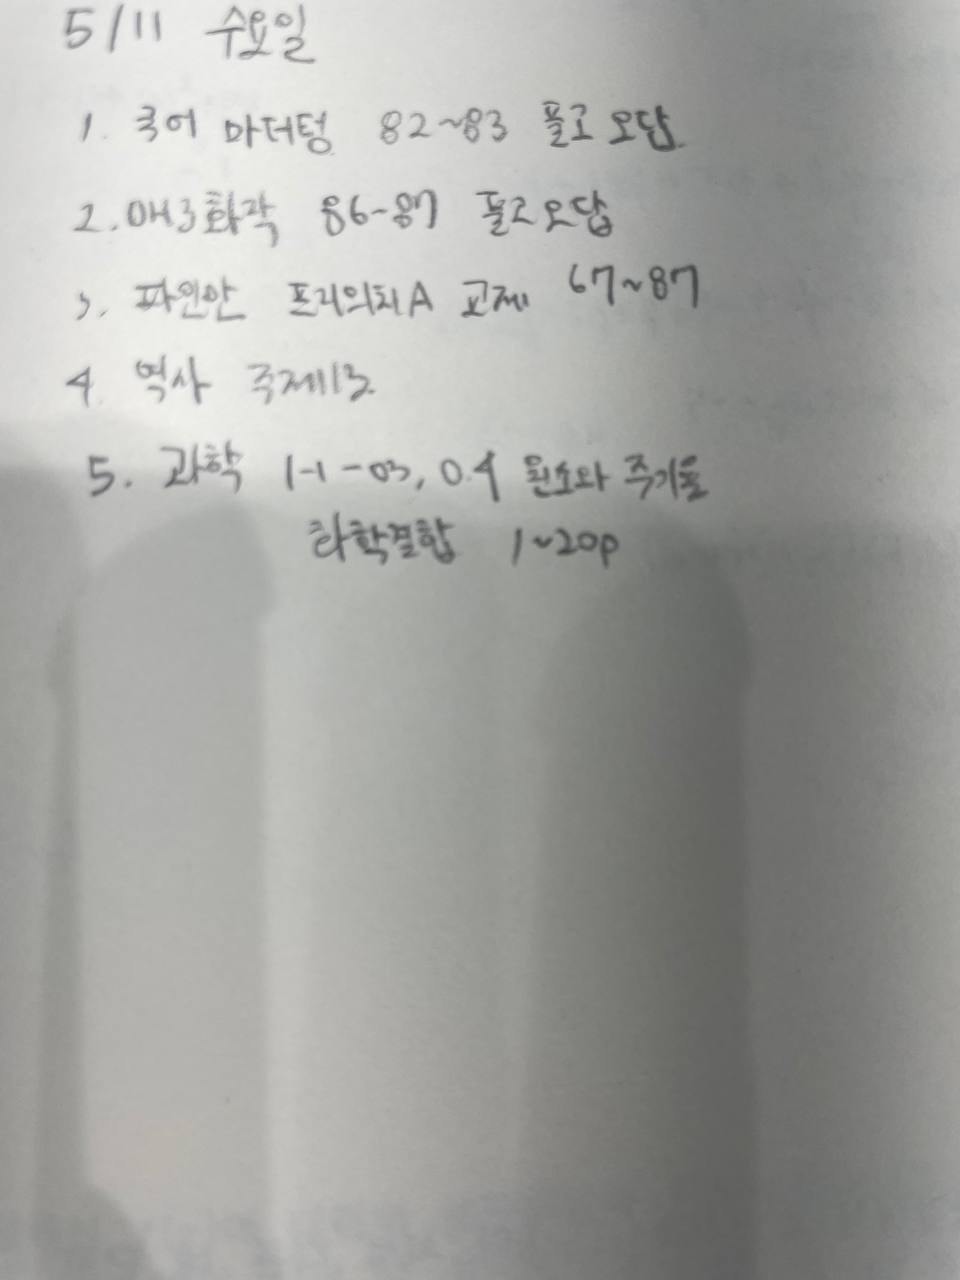 5/11 수요일
1. 국어 마더텅 82~83 풀고 오답
2. 매3화작 86-87 풀고오답
3. 파인만 프리의치A 교재 67~87
4. 역사 주제13
5. 과학 1-1-03, 0.4 원소와 주기율
화학결합 1~20p